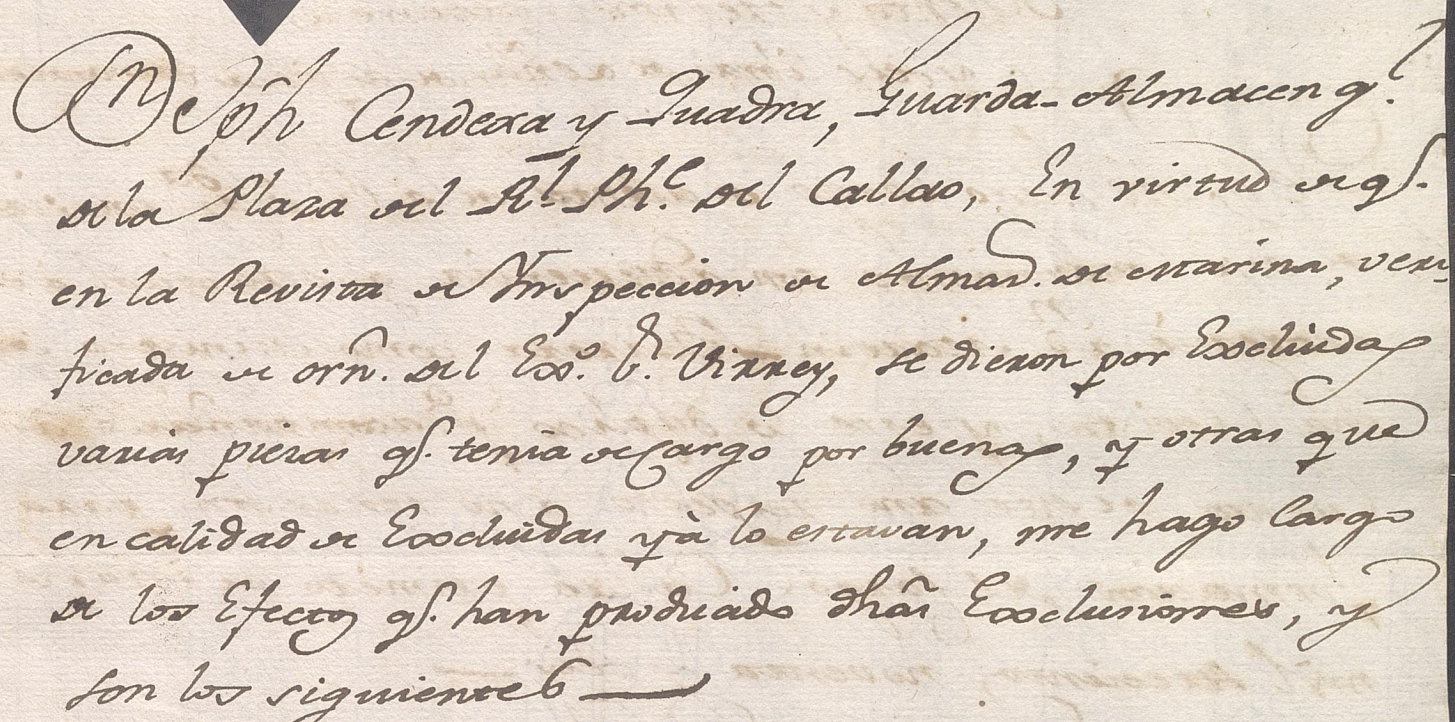 Dn Jph Cendexa y Quadra, Guarda-Almacen gl.
de la Plaza del Rl. Phe. del Callao, En virtud de qe.
en la Revista de Ynspeccion de Almacs. de Marina, veri-
ficada de orn. del Exo. Sr. Virrey, se dieron por Excluidas
varias piezas qe. tenia de Cargo por buenas, y otras que
en calidad de Excluidas yà lo estavan, me hago Cargo
de los Efectos qe. han producido dhas Exclusiones, y
son los siguientes